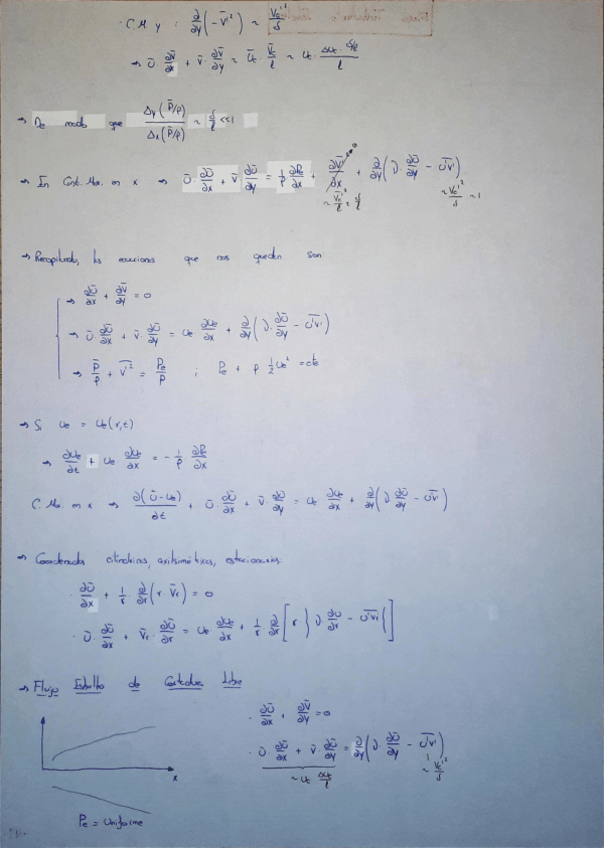 · C.M. y : ∂/∂y (- v̅'²) ~ Vc'²/δ
→ ū · ∂v̄/∂x + v̄ · ∂v̄/∂y ~ ūc · v̄c/l ~ uc · Δuc · δ/l / l
→ De modo que Δy(p̄/ρ) / Δx(p̄/ρ) ~ δ/l <<1
→ En Cont. Mov. en x → ū · ∂ū/∂x + v̄ · ∂ū/∂y = 1/ρ ∂Pe/∂x + ∂v̅'²/∂x + ∂/∂y (ν · ∂ū/∂y - u̅'v̅')
~ Vc'²/l ~ δ/l
~ Vc'²/δ ~ 1
→ Recapitulando, las ecuaciones que nos quedan son:
→ ∂ū/∂x + ∂v̄/∂y = 0
→ ū · ∂ū/∂x + v̄ · ∂ū/∂y = ue ∂ue/∂x + ∂/∂y (ν · ∂ū/∂y - u̅'v̅')
→ p̄/ρ + v̅'² = Pe/ρ ; Pe + ρ 1/2 ue² = cte
→ Si ue = ue(x,t)
→ ∂ue/∂t + ue ∂ue/∂x = - 1/ρ · ∂Pe/∂x
C. Mov. en x → ∂(ū-ue)/∂t + ū · ∂ū/∂x + v̄ · ∂ū/∂y = ue ∂ue/∂x + ∂/∂y (ν ∂ū/∂y - u̅'v̅')
→ Coordenadas cilíndricas, axisimétricas, estacionarias:
· ∂ū/∂x + 1/r · ∂/∂r (r · v̄r) = 0
· ū · ∂ū/∂x + v̄r · ∂ū/∂r = ue ∂ue/∂x + 1/r ∂/∂r [r { ν ∂ū/∂r - u̅'v̅r̅' {]
→ Flujo Esbelto de Cortadura Libre
· ∂ū/∂x + ∂v̄/∂y = 0
· ū · ∂ū/∂x + v̄ · ∂ū/∂y = ∂/∂y (ν · ∂ū/∂y - u̅'v̅')
~ uc Δuc/l
~ Vc'²/δ
x
Pe = Uniforme